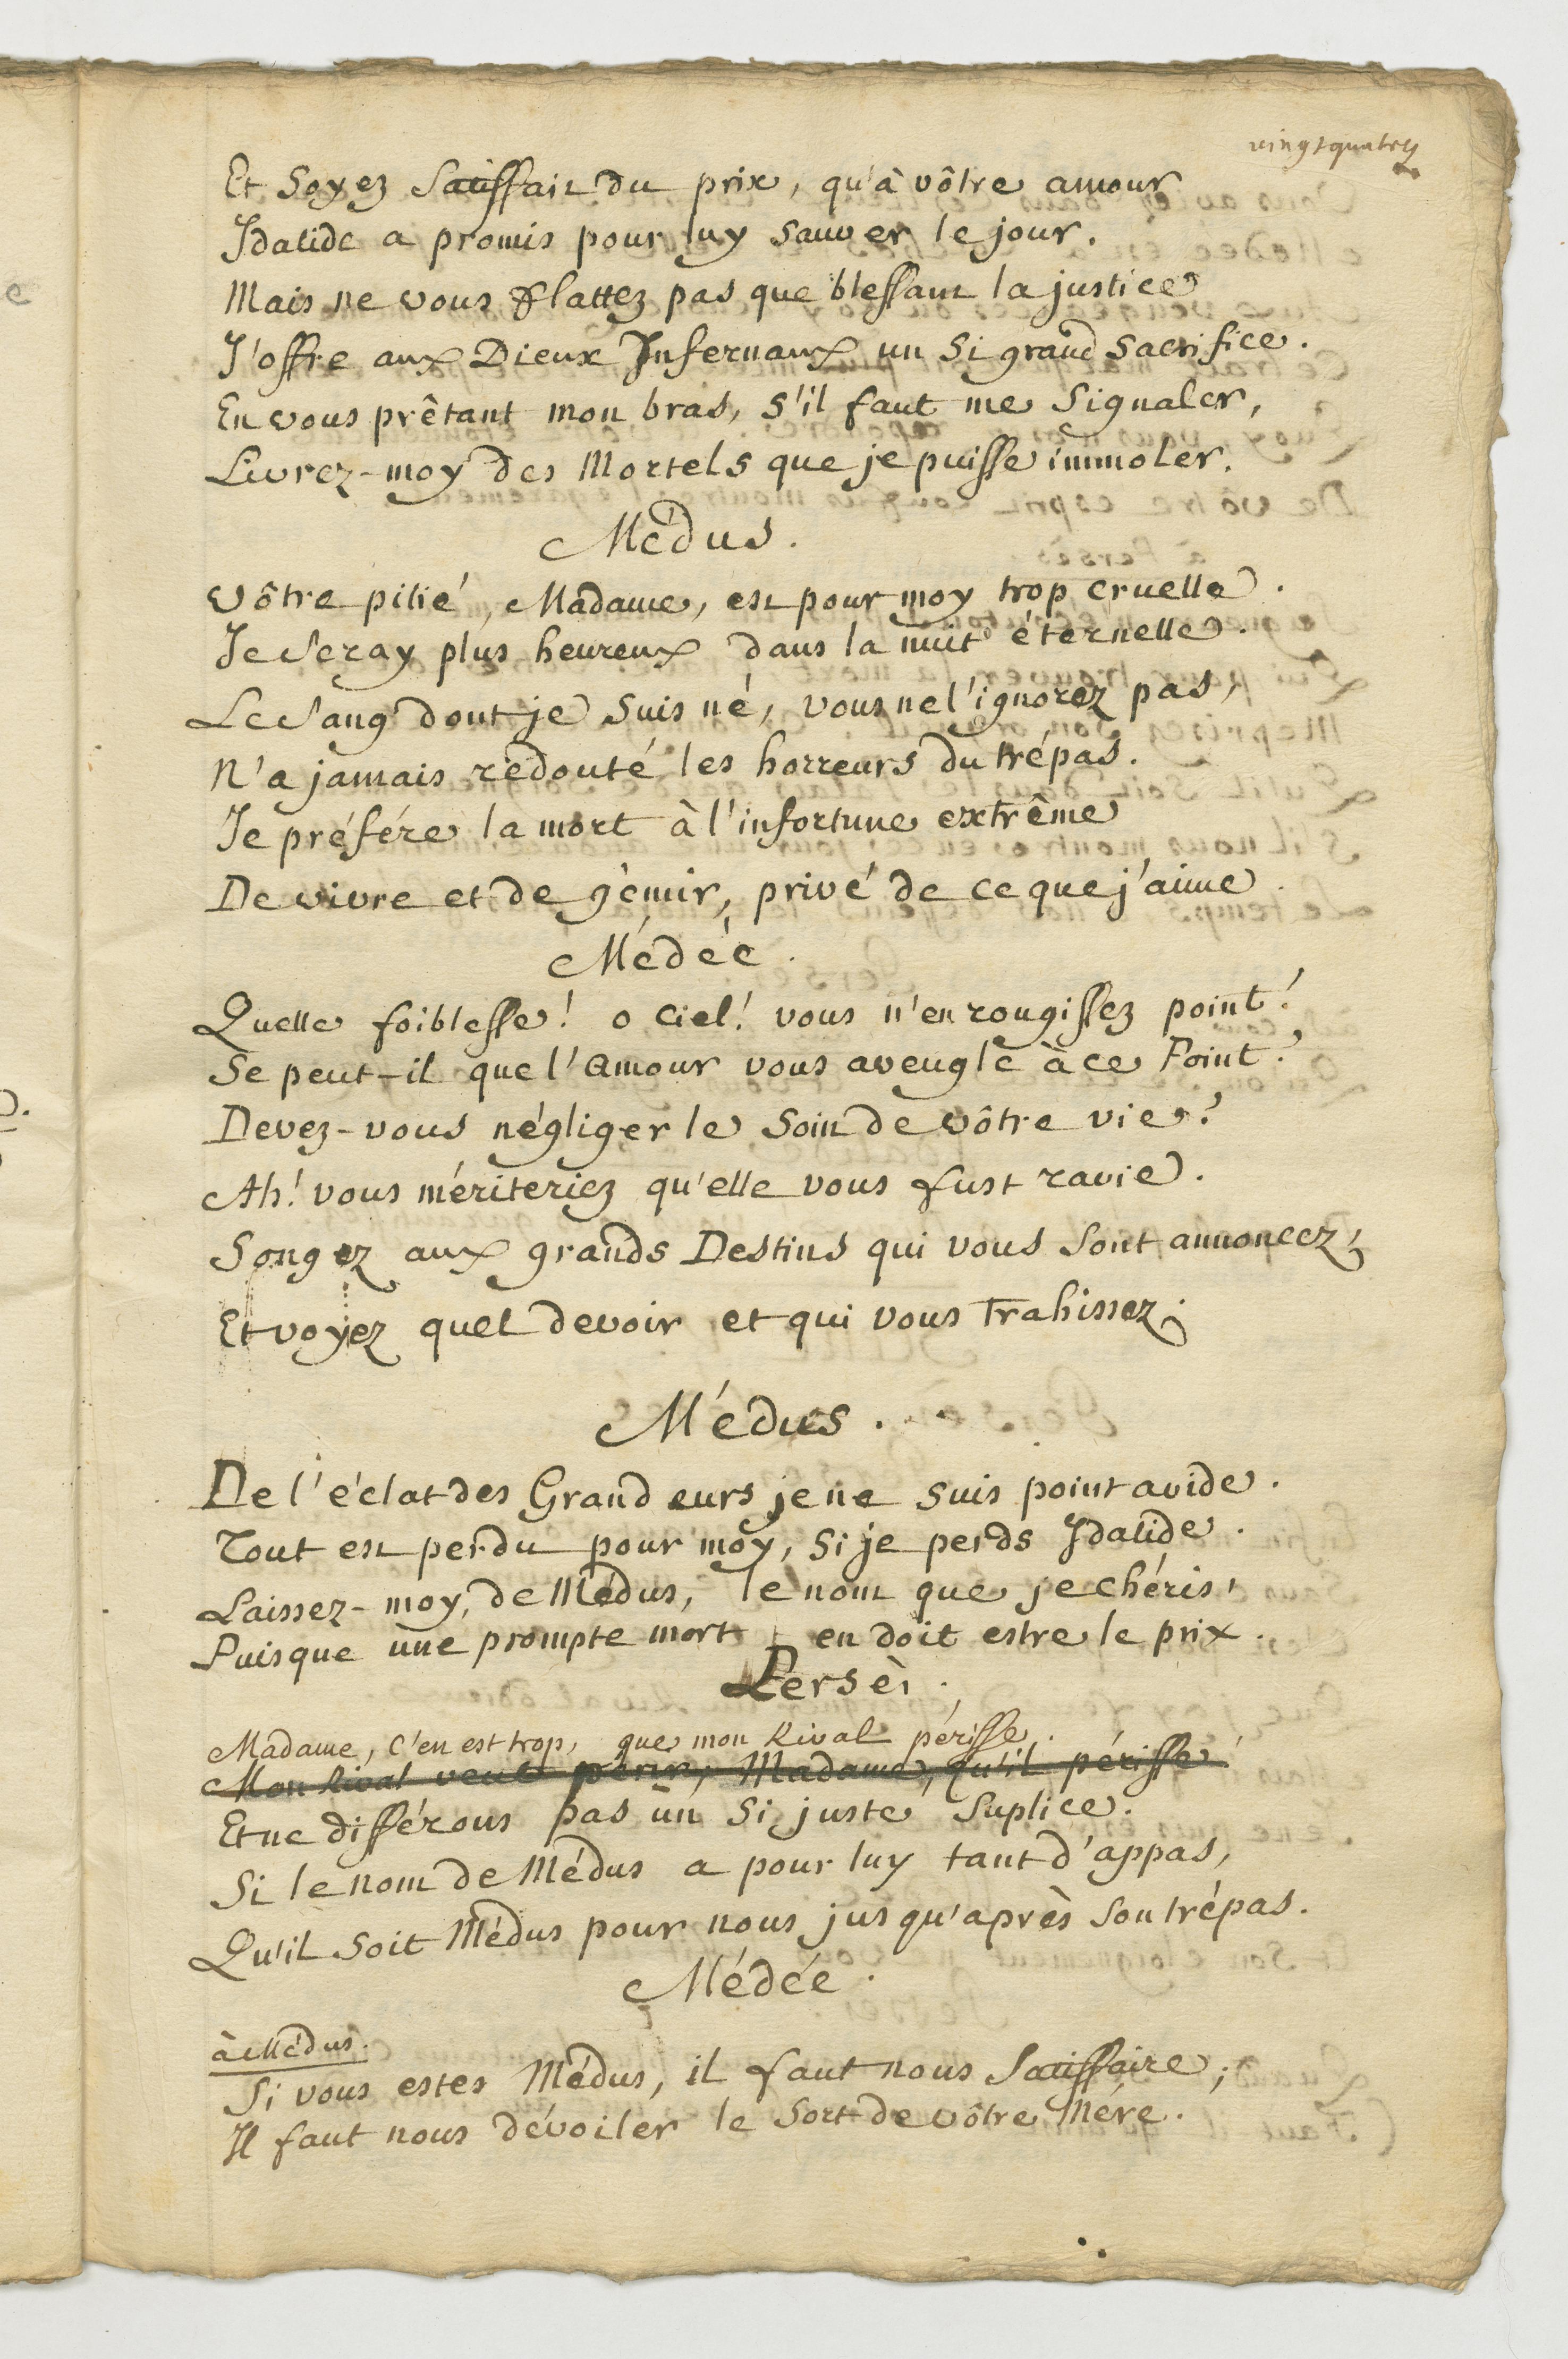 vingt quatre
Et Soyez Satisfait du prix, qu'à vôtre amour
Idalide a promis pour luy sauver le jour.
Mais ne vous flattez pas que blessant la justice
J'offre aux Dieux Infernaux un si grand sacrifice.
En vous prêtant mon bras, s'il faut me signaler,
Livrez-moy des Mortels que je puisse immoler.
Médus.
Vôtre pitié, Madame, est pour moy trop cruelle.
Je seray plus heureux dans la nuit éternelle.
Le sang dont je suis né, vous ne l'ignorez pas,
N'a jamais redouté les horreurs du trépas.
Je préfére la mort à l'infortune extrême
De vivre et de gémir, privé de ce que j'aime.
Médée.
Quelle foiblesse! o Ciel! vous n'en rougissez point!
Se peut-il que l'Amour vous aveugle à ce Point?
Devez-vous négliger le soin de vôtre vie?
Ah! vous mériteriez qu'elle vous fust ravie.
Songez aux grands Destins qui vous sont annoncez,
Et voyez quel devoir et qui vous trahissez.
Médus.
De l'éclat des Grandeurs je ne suis point avide.
Tout est perdu pour moy, si je perds Idalide.
Laissez-moy, de Médus, le nom que je chéris,
Puisque une prompte mort en doit estre le prix.
Persès.
Madame, c'en est trop, que mon Rival périsse.
Mon Rival veut périr, Madame, qu'il périsse
Et ne différons pas un si juste suplice.
Si le nom de Médus a pour luy tant d'appas,
Qu'il soit Médus pour nous jusqu'après son trépas.
Médée.
à Médus.
Si vous estes Médus, il faut nous satisfaire;
Il faut nous dévoiler le sort de vôtre Mére.